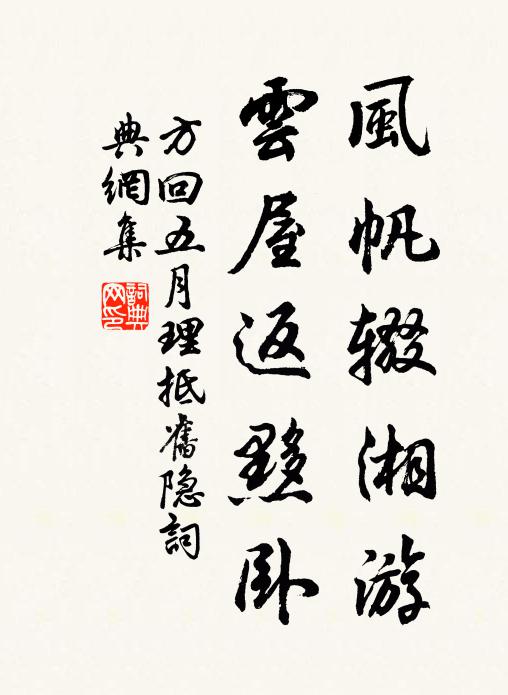 風帆辍湘游
雲屋返黟卧
方回五月理抵舊隐詞
典網集
詞典網印